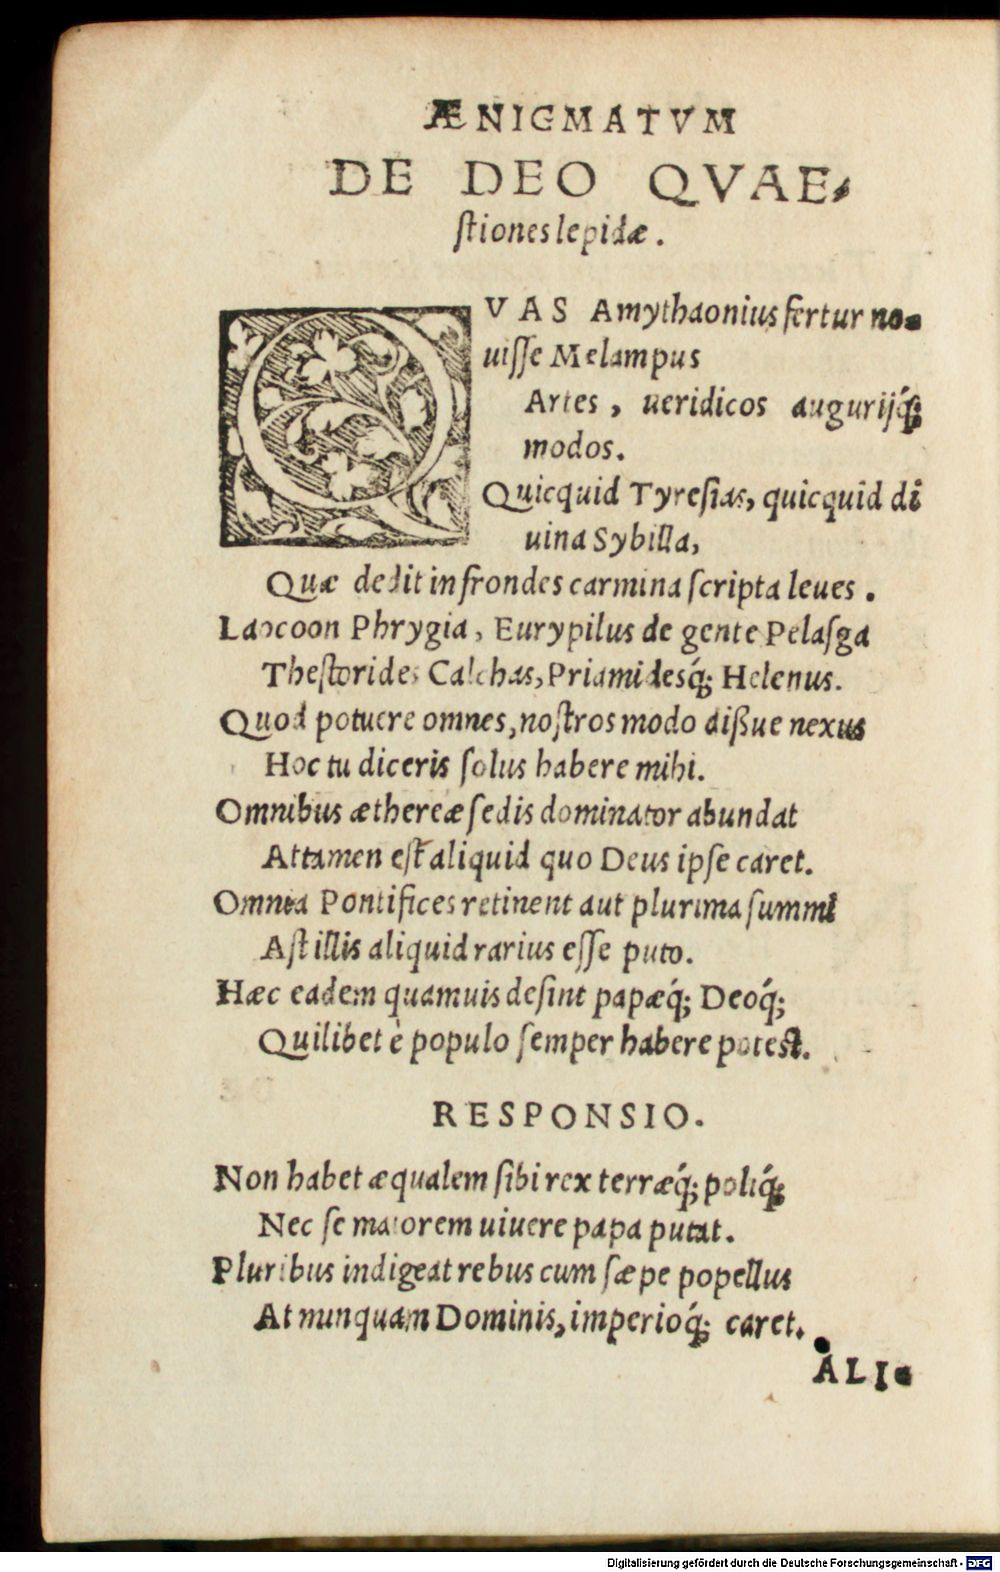 ÆNIGMATVM
DE DEO QVAE-
ſtiones lepidæ.
QVAS Amythaonius fertur no-
uiſſe Melampus
Artes, ueridicos augurijq́;
modos.
Quicquid Tyreſias, quicquid di
uina Sybilla,
Quæ dedit in frondes carmina ſcripta leues.
Laocoon Phrygia, Eurypilus de gente Pelaſga
Theſtorides Calchas, Priamidesq́; Helenus.
Quod potuere omnes, noſtros modo dißue nexus
Hoc tu diceris ſolus habere mihi.
Omnibus æthereæ ſedis dominator abundat
Attamen eſt aliquid quo Deus ipſe caret.
Omnia Pontifices retinent aut plurima ſummi
Aſt illis aliquid rarius eſſe puto.
Hæc eadem quamuis deſint papæq́; Deoq́;
Quilibet è populo ſemper habere poteſt.
RESPONSIO.
Non habet æqualem ſibi rex terræq́; poliq́;
Nec ſe maiorem uiuere papa putat.
Pluribus indigeat rebus cum ſæpe popellus
At nunquam Dominis, imperioq́; caret.
ALI-
Digitalisierung gefördert durch die Deutsche Forschungsgemeinschaft - DFG